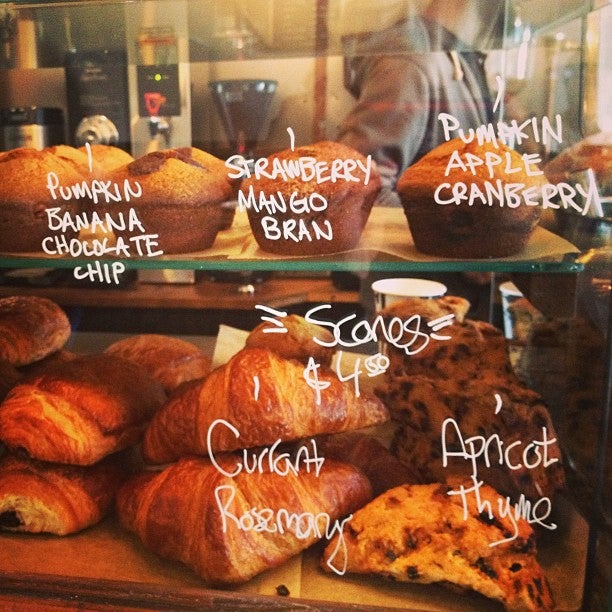 PUMPKIN
BANANA
CHOCOLATE
CHIP
STRAWBERRY
MANGO
BRAN
PUMPKIN
APPLE
CRANBERRY
Scones
$4.50
Currant
Rosemary
Apricot
Thyme